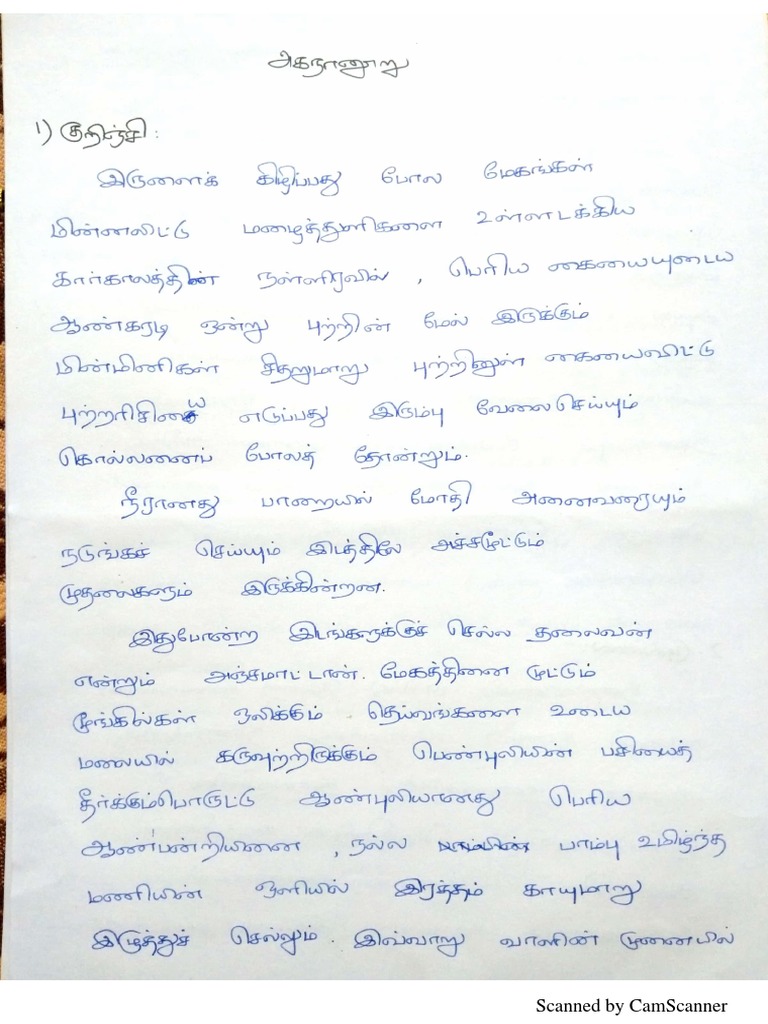 அகநானூறு
1) குறிஞ்சி :
இருளைக் கிழிப்பது போல மேகங்கள்
மின்னலிட்டு மழைத்துளிகளை உள்ளடக்கிய
கார்காலத்தின் நள்ளிரவில் , பெரிய கையையுடைய
ஆண்கரடி ஒன்று புற்றின் மேல் இருக்கும்
மின்மினிகள் சிதறுமாறு புற்றினுள் கையைவிட்டு
புற்றரிசியை எடுப்பது இரும்பு வேலைசெய்யும்
கொல்லனைப் போலத் தோன்றும்.
நீரானது பாறையில் மோதி அனைவரையும்
நடுங்கச் செய்யும் இடத்திலே அச்சமூட்டும்
முதலைகளும் இருக்கின்றன.
இதுபோன்ற இடங்களுக்குச் செல்ல தலைவன்
என்றும் அஞ்சமாட்டான். மேகத்தினை முட்டும்
மூங்கில்கள் ஒலிக்கும் தெய்வங்களை உடைய
மலையில் கருவுற்றிருக்கும் பெண்புலியின் பசியைத்
தீர்க்கும்பொருட்டு ஆண்புலியானது பெரிய
ஆண்பன்றியினை , நல்ல பாம்பு உமிழ்ந்த
மணியின் ஒளியில் இரத்தம் காயுமாறு
இழுத்துச் செல்லும். இவ்வாறு வாளின் முனையில்
Scanned by CamScanner